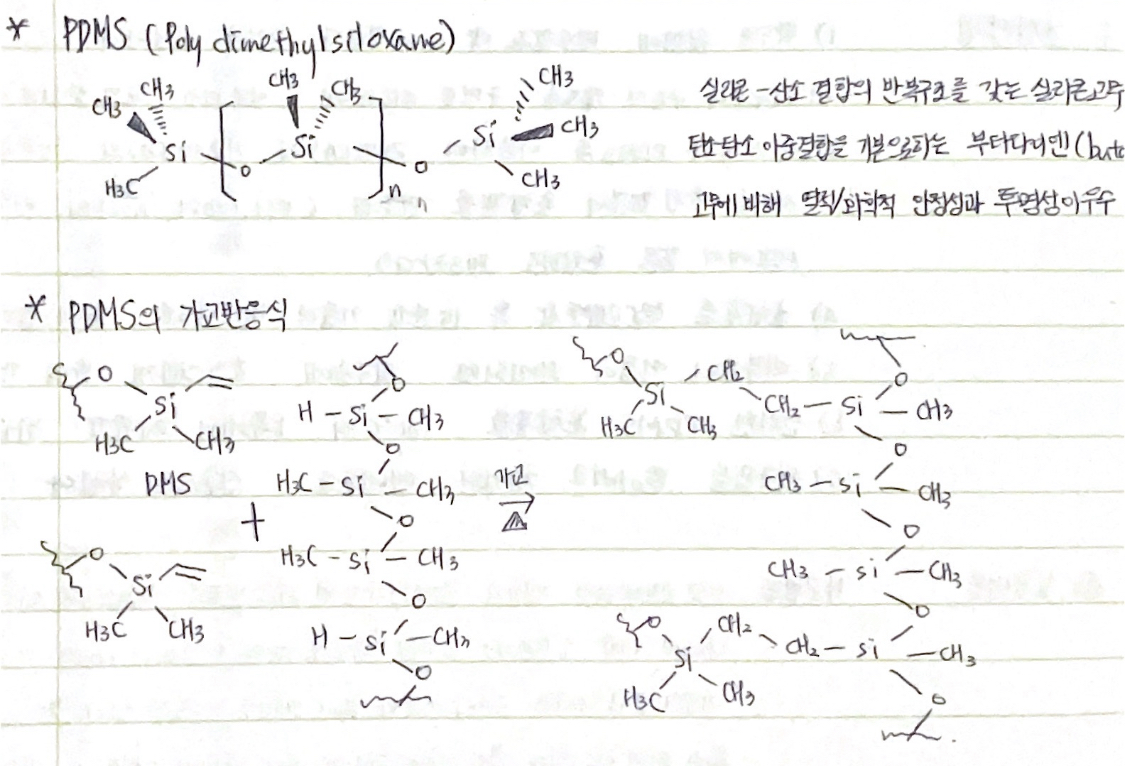 * PDMS (Poly dimethylsiloxane)
CH3 CH3 CH3 CH3 CH3
Si Si Si CH3
H3C O n O CH3
실리콘-산소 결합의 반복구조를 갖는 실리콘고무
탄소탄소 이중결합을 기본으로하는 부타다이엔 (buta
고무에 비해 열적/화학적 안정성과 투명성이 우수
* PDMS의 가교반응식
O Si H3C CH3
DMS
+
O Si H3C CH3
O
H - Si - CH3
O
H3C - Si - CH3
O
H3C - Si - CH3
O
H - Si - CH3
O
가교
△
O Si CH2 CH2 - Si - CH3
H3C CH3 O
CH3 - Si - CH3
O
CH3 - Si - CH3
O
O Si CH2 CH2 - Si - CH3
H3C CH3 O